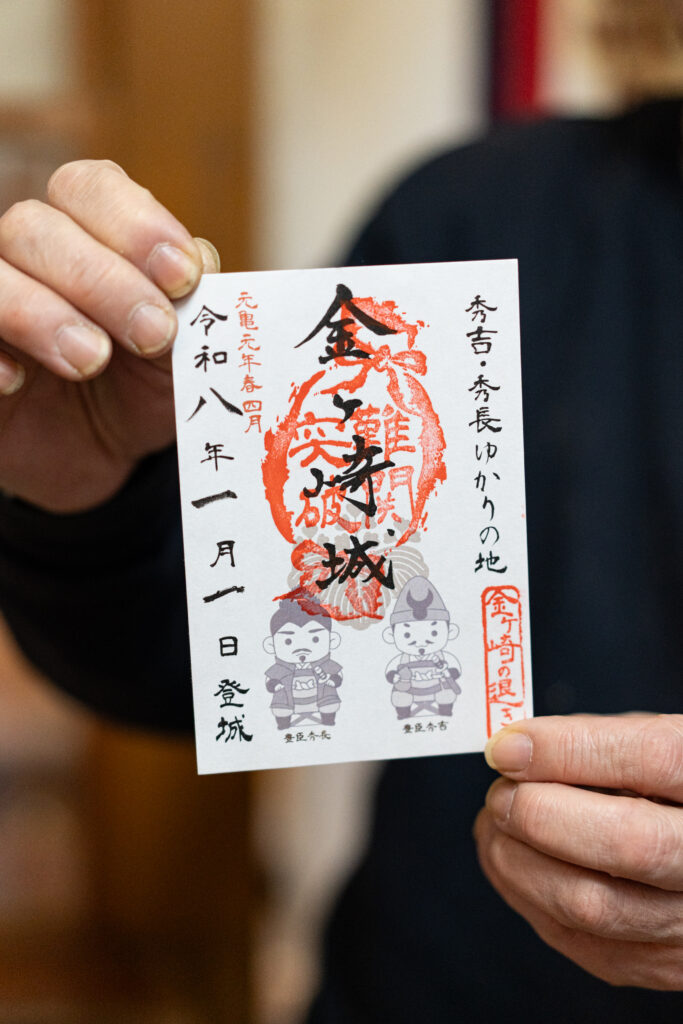 秀吉・秀長ゆかりの地
金ヶ崎の退き
金ヶ崎城
難関
突破
元亀元年春四月
令和八年一月一日登城
豊臣秀長
豊臣秀吉